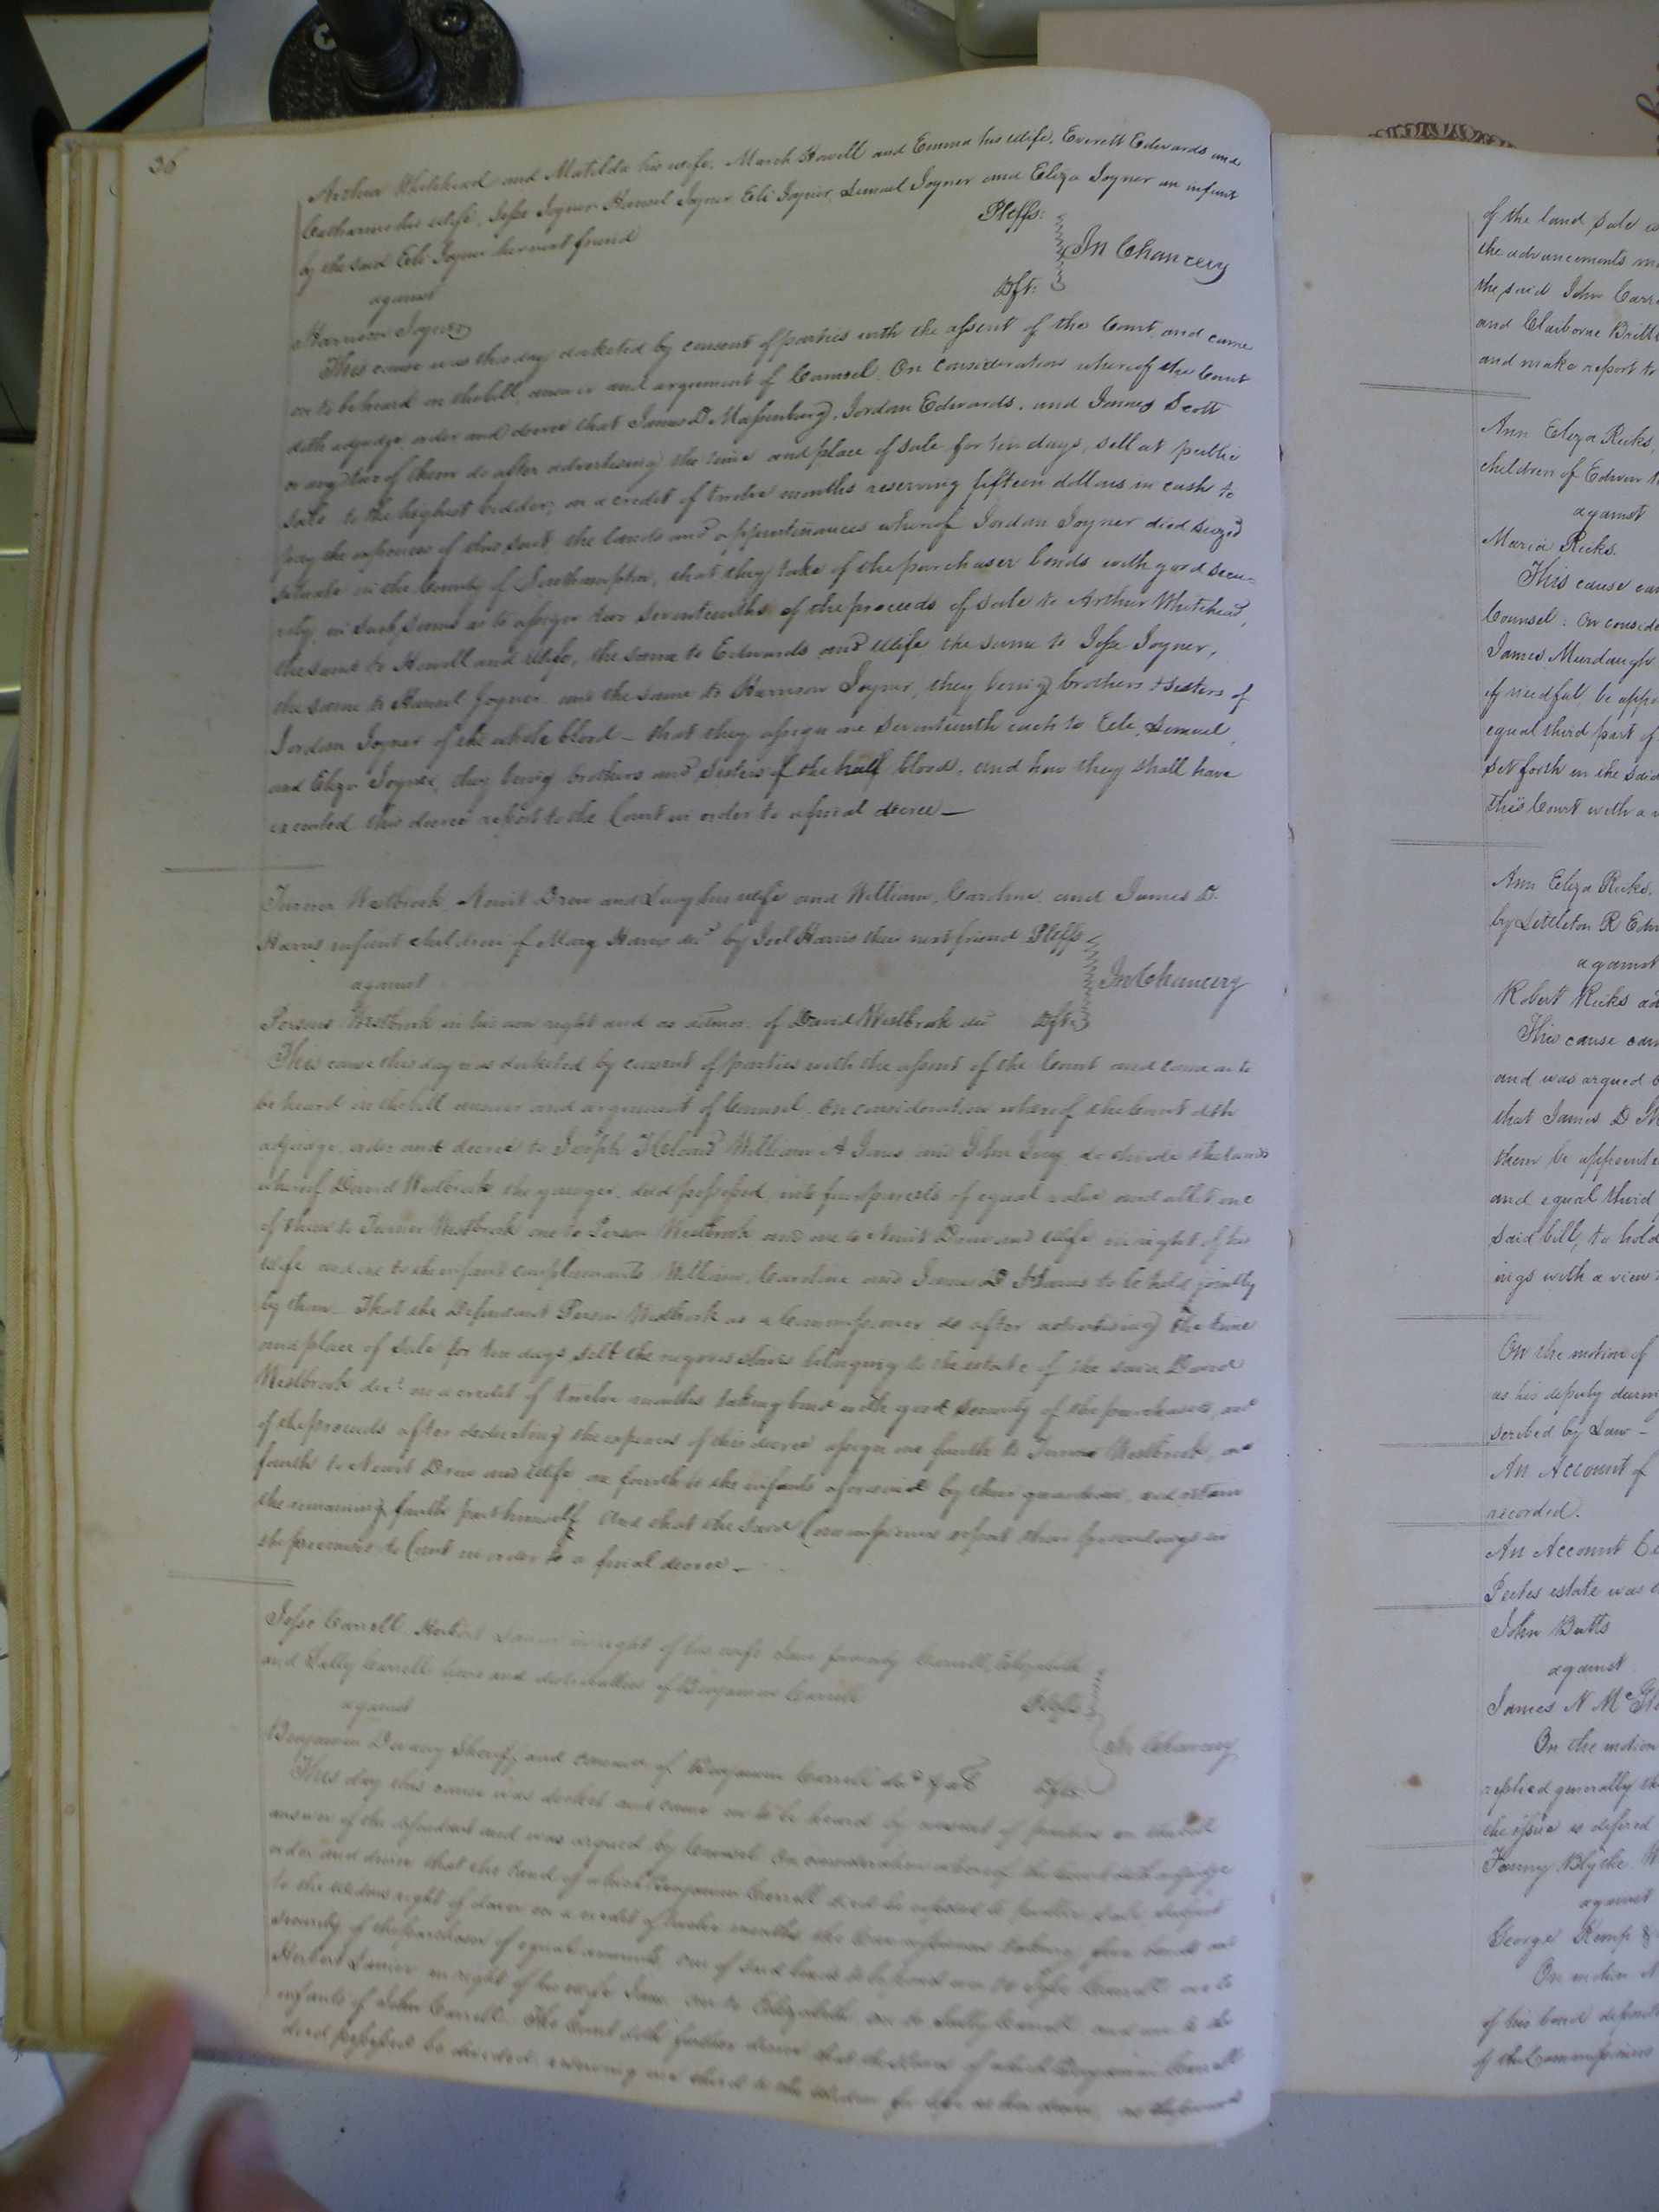 36
Arthur Whitehead and Matilda his wife, March Howell and Emma his Wife, Everett Edwards and
Catharine his Wife, Jesse Joyner Hansel Joyner Eli Joyner, Lemuel Joyner and Eliza Joyner an infant
by the said Eli Joyner her next friend Pltffs:
against In Chancery
Harrison Joyner Dft:
This cause was this day docketed by consent of parties with the assent of the Court, and came
on to be heard on the bill, answer and argument of Counsel. On consideration whereof the Court
doth adjudge order and decree that James D Massenburg, Jordan Edwards, and James Scott
or any two of them do after advertising the time and place of sale for ten days, sell at public
sale to the highest bidder, on a credit of twelve months reserving fifteen dollars in cash to
pay the expences of this suit, the lands and appurtinances whereof Jordan Joyner died seized
situate in the County of Southampton, that they take of the purchaser bonds with good secu-
rity, in such sums as to assign two seventeenths of the proceeds of sale to Arthur Whitehead,
the same to Howell and Wife, the same to Edwards and Wife the same to Jesse Joyner,
the same to Hansel Joyner and the same to Harrison Joyner, they being brothers & sisters of
Jordan Joyner of the whole blood – that they assign one seventeenth each to Eli, Lemuel,
and Eliza Joyner, they being brothers and sisters of the half blood, and how they shall have
executed this decree report to the Court in order to a final decree –
Turner Westbrook, Newit Drew and Lucy his wife and William, Caroline, and James D.
Harris infant children of Mary Harris decd by Joel Harris their next friend Pltffs
against In Chancery
Persons Westbrook in his own right and as admor. of David Westbrook dec Dft:
This cause this day was docketed by consent of parties with the assent of the Court and came on to
be heard on the bill answer and argument of Counsel. On consideration whereof the Court doth
adjudge, order and decree to Joseph William A Jones and John do divide the land
whereof David Westbrook the younger died possessed, into four parcels of equal value and allot one
of them to Turner Westbrook one to Person Westbrook and one to Newit Drew and Wife in right of his
wife and one to the infant complainants William, Caroline and James D Harris to be held jointly
by them – That the Defendant Person Westbrook as a Commissioner do after advertising the time
and place of sale for ten days, sell the negroes slaves belonging to the estate of the said David
Westbrook decd on a credit of twelve months taking bond with good security of the purchasers, and
of the proceeds after deducting the expences of this decree assign one fourth to Turner Westbrook, one
fourth to Newit Drew and Wife, one fourth to the infants aforesaid by their guardian, and retain
the remaining fourth part himself. And that the said Commissioners report their proceedings in
the premises to Court in order to a final decree –
Jesse Carrell, Herbert Lanier in right of his wife Jane formerly Carrell, Elizabeth
and Sally Carrell heirs and distributees of Benjamin Carrell Pltffs
against In Chancery
Benjamin Devany Sheriff and commr of Benjamin Carrell decd & al Dfts
This day this cause was docket and came on to be heard by consent of parties on the bill
answer of the defendant and was argued by Counsel. On consideration whereof the Court doth adjudge
order and decree that the land of which Benjamin Carrell died be exposed to public sale, subject
to the widows right of dower on a credit of twelve months, the Commissioner taking five bonds and
security of the purchaser of equal amounts, one of said bonds to be Jesse Carrell one to
Herbert Lanier in right of his wife Jane, one to Elizabeth, one to Sally Carrell, and one to the
infants of John Carrell. The Court doth further decree that the slaves of which Benjamin Carrell
died possessed be divided, reserving one third to the widow for life as her dower,
of the land sale
the advancements
the said John Carr
and Claiborne Britt
and make report to
Ann Eliza Ricks,
children of Edwin
against
Maria Ricks.
This cause
Counsel: On consid
James Murdaugh
if needful, be app
equal third part of
set forth in the said
This Court with a
Ann Eliza Ricks.
by Littleton R Edw
against
Robert Ricks
This cause
and was argued
that James D
them be appointe
and equal third
said bill, to hold
ings with a view
On the motion of
as his deputy
scribed by Law –
An Account of
recorded.
An Account
Peetes estate was
John Butts
against
James N Mc
On the motion
replied generally
the issue is
Fanny Blythe.
against
George Kemp &
On motion
of his bond
of the Commissioners